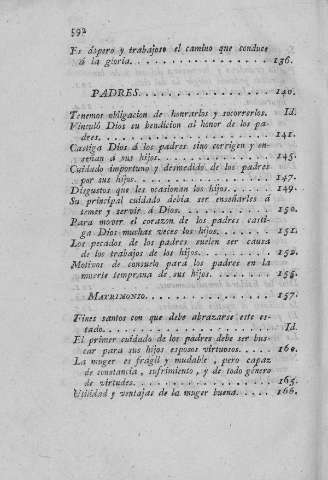 592
Es áspero y trabajoso el camino que conduce
á la gloria. . . . . . . . . . . . . . . . . . 136.
PADRES. . . . . . . . . . . . . . . . . 140.
Tenemos obligacion de honrarlos y socorrerlos. Id.
Vinculó Dios su bendicion al honor de los pa-
dres. . . . . . . . . . . . . . . . . . . . . 141.
Castiga Dios á los padres sino corrigen y en-
señan á sus hijos. . . . . . . . . . . . . . . 145.
Cuidado importuno y desmedido de los padres
por sus hijos. . . . . . . . . . . . . . . . . 147.
Disgustos que les ocasionan los hijos. . . . . . 149.
Su principal cuidado debia ser enseñarles á
temer y servir á Dios. . . . . . . . . . . . . 150.
Para mover el corazon de los padres casti-
ga Dios muchas veces los hijos. . . . . . . 151.
Los pecados de los padres suelen ser causa
de los trabajos de los hijos. . . . . . . . . . 152.
Motivos de consuelo para los padres en la
muerte temprana de sus hijos. . . . . . . . . 155.
MATRIMONIO. . . . . . . . . . . . . . . 157.
Fines santos con que debe abrazarse este es-
tado. . . . . . . . . . . . . . . . . . . . . Id.
El primer cuidado de los padres debe ser bus-
car para sus hijos esposos virtuosos. . . . . 160.
La muger es fragil y mudable, pero capaz
de constancia, sufrimiento, y de todo género
de virtudes. . . . . . . . . . . . . . . . . . 165.
Utilidad y ventajas de la muger buena. . . . . 166.